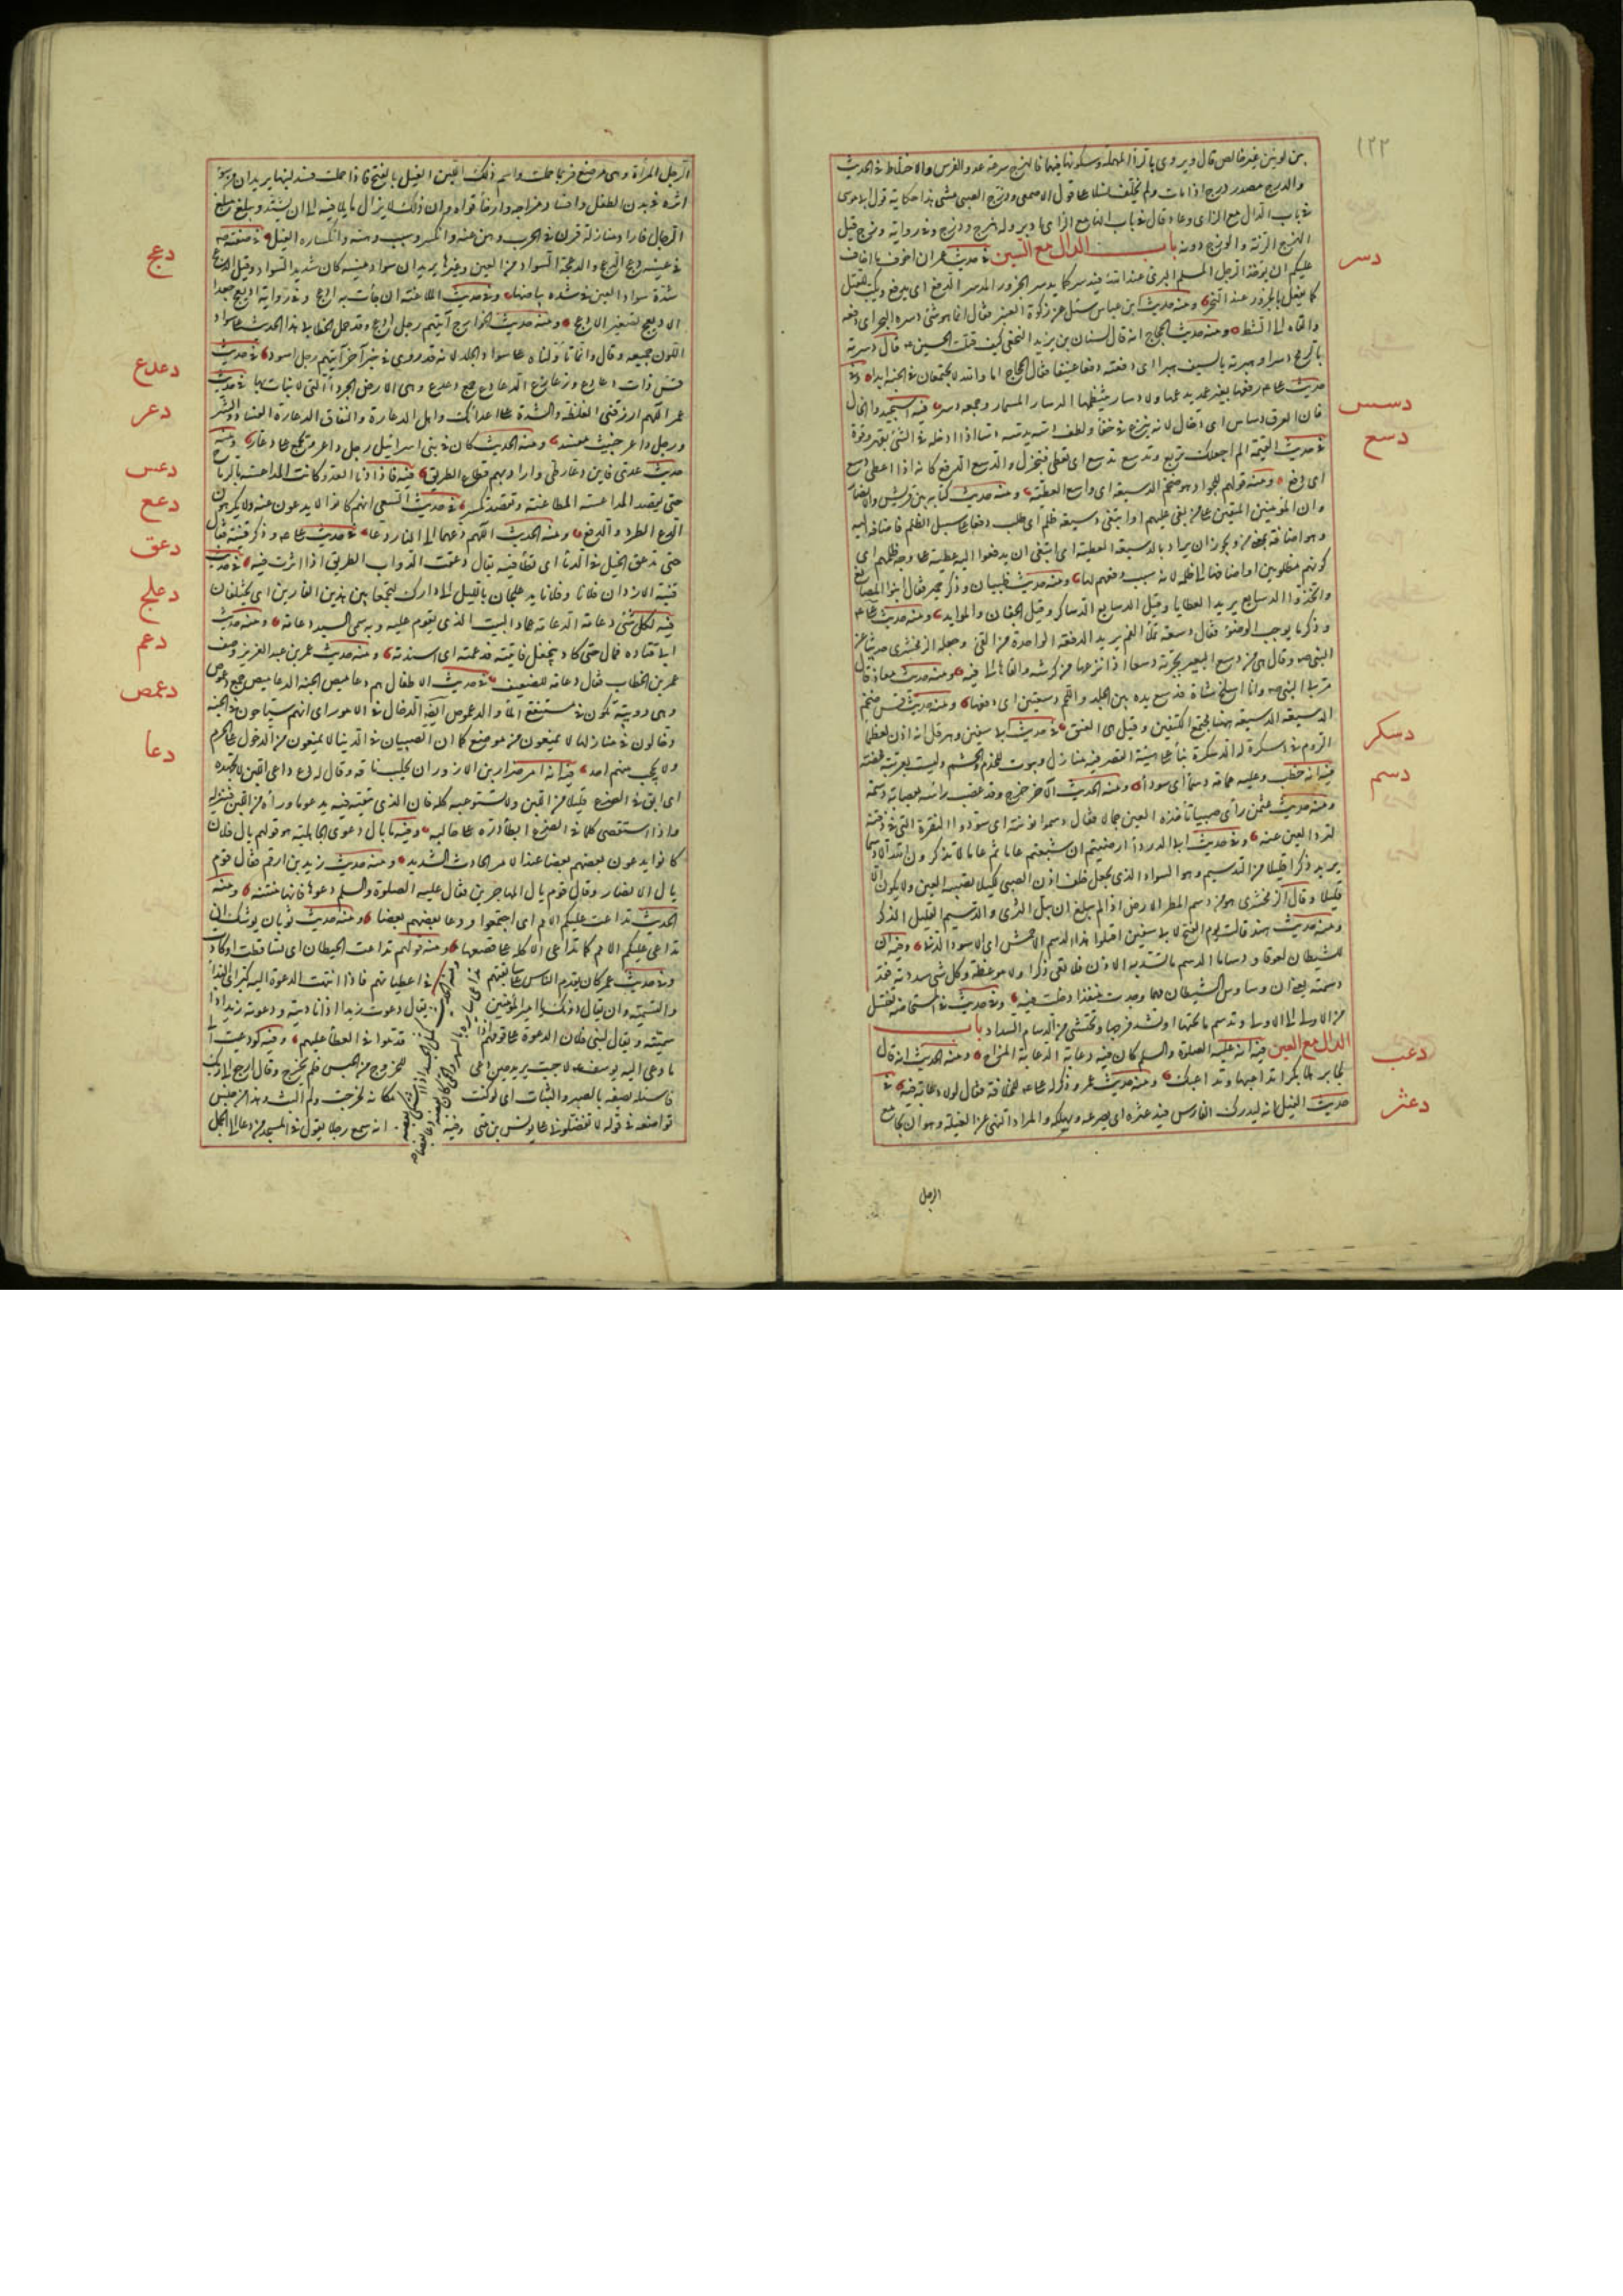 ١٢٢
بين لونين غير خالص قال ويروى بالراء المهملة وسكونها فيهما فالهزج سرعة عدو الفرس والاختلاط في الحديث
والدرج مصدر درج اذا مات ولم يخلف نسلا على قول الاصمعي ودزج الصبي مشى هذا حكاية قول ابي موسى
في باب الدال مع الزاي وعاد قال في باب الهاء مع الزاي ادبر وله هزج ودزج وفي رواية وزج قيل
الهزج الرنة والوزج دونه باب الدال مع السين في حديث عمر ان اخوف ما اخاف
دسر
عليكم ان يؤخذ الرجل المسلم البرئ عند الله فيدسر كما يدسر الجزور الدسر الدفع اي يدفع ويكب للقتل
كما يفعل بالجزور عند النحر ومنه حديث ابن عباس سئل عن زكوة العنبر فقال انما هو شئ دسره البحر اي دفعه
والقاه الى الشط ومنه حديث الحجاج انه قال لسنان بن يزيد النخعي كيف قتلت الحسين قال دسرته
بالرمح دسرا وهبرته بالسيف هبرا اي دفعته دفعا عنيفا فقال الحجاج اما والله لا تجتمعان في الجنة ابدا وفي
حديث علي رفعها بغير عمد يدعمها ولا دسار ينتظمها الدسار المسمار وجمعه دسر فيه استجيدوا الخال
دسس
فان العرق دساس اي دخال لانه ينزع في خفاء ولطف دسه يدسه دسا اذا ادخله في الشئ بقهر وقوة
دسع
في حديث القيمة الم اجعلك تربع وتدسع تدسع اي تعطي فتجزل والدسع الدفع كانه اذا اعطى دسع
اي دفع ومنه قولهم للجواد هو ضخم الدسيعة اي واسع العطية ومنه حديث كتابه بين قريش والانصار
وان المؤمنين المتقين على من بغى عليهم او ابتغى دسيعة ظلم اي طلب دفعا على سبيل الظلم فاضافه اليه
وهو اضافة بمعنى من ويجوز ان يراد بالدسيعة العطية اي ابتغى ان يدفعوا اليه عطية على وجه ظلمهم اي
كونهم مظلومين او اضافها الى ظلمه لانه سبب دفعهم لها ومنه حديث ظبيان وذكر حمير فقال بنوا المصانع
واتخذوا الدسايع يريد العطايا وقيل الدسايع الدساكر وقيل الجفان والموايد ومنه حديث علي
وذكر ما يوجب الوضوء فقال دسعة تملأ الفم يريد الدفعة الواحدة من القئ وجعله الزمخشري حديثا عن
النبي وقال هي من دسع البعير بجرته دسعا اذا نزعها من كرشه والقاها الى فيه ومنه حديث معاذ قال
مر بي النبي وانا اسلخ شاة فدسع يده بين الجلد واللحم دسعتين اي دفعها ومنه حديث قس ضخم
الدسيعة الدسيعة ههنا مجتمع الكتفين وقيل هي العنق في حديث ابي سفين وهرقل انه اذن لعظماء
دسكر
الروم في دسكرة له الدسكرة بناء على هيئة القصر فيه منازل وبيوت للخدم والحشم وليست بعربية محضة
دسم
فيه انه خطب وعليه عمامة دسماء اي سوداء ومنه الحديث الآخر خرج وقد عصب رأسه بعصابة دسمة
ومنه حديث عثمن رأى صبيا تأخذه العين جمالا فقال دسموا نونته اي سودوا النقرة التي في ذقنه
لترد العين عنه وفي حديث ابي الدرداء ارضيتم ان شبعتم عاما ثم عاما لا تذكرون الله الا دسما
يريد ذكرا قليلا من التدسيم وهو السواد الذي يجعل خلف اذن الصبي لكيلا تصيبه العين ولا يكون الا
قليلا وقال الزمخشري هو من دسم المطر الارض اذا لم يبلغ ان يبل الثرى والدسيم القليل الذكر
ومنه حديث هند قالت يوم الفتح لابي سفين اقتلوا هذا الدسم الاحمش اي الاسود الدنئ وفيه ان
للشيطان لعوقا ودساما الدسام ما تسد به الاذن فلا تعي ذكرا ولا موعظة وكل شئ سددته فقد
دسمته يعني ان وساوس الشيطان مهما وجدت منفذا دخلت فيه وفي حديث المستحاضة تغتسل
من الاولى الى الاولى وتدسم ما تحتها اي تسد فرجها وتحتشي من الدسام السداد باب
دعب
الدال مع العين فيه انه عليه الصلوة والسلام كان فيه دعابة الدعابة المزاح ومنه الحديث انه قال
لجابر هلا بكرا تداعبها وتداعبك ومنه حديث عمر وذكر له علي للخلافة فقال لولا دعابة فيه في
دعثر
حديث الغيل انه ليدرك الفارس فيدعثره اي يصرعه ويهلكه والمراد النهي عن الغيلة وهو ان يجامع
الرجل
الرجل المرأة وهي مرضع فربما حملت واسم ذلك اللبن الغيل بالفتح فاذا حملت فسد لبنها يريد ان من سوء
اثره في بدن الطفل وافساد مزاجه وارخاء قواه وان ذلك لا يزال ماثلا فيه الى ان يشتد ويبلغ مبلغ
الرجال فاذا اراد منازلة قرن في الحرب وهن عنه وانكسر وسبب وهنه وانكساره الغيل في صفته
دعج
في عينيه دعج الدعج والدعجة السواد في العين وغيرها يريد ان سواد عينيه كان شديد السواد وقيل الدعج
شدة سواد العين في شدة بياضها وفي حديث الملاعنة ان جاءت به ادعج وفي رواية اديعج جعدا
الاديعج تصغير الادعج ومنه حديث الخوارج آيتهم رجل ادعج وقد حمل الخطابي هذا الحديث على سواد
اللون جميعه وقال وانما تأولناه على سواد الجلد لانه قد روي في خبر آخر آيتهم رجل اسود في حديث
دعدع
قس ذات دعادع وزعازع الدعادع جمع دعدع وهي الارض الجرداء التي لا نبات بها في حديث
دعر
عمر اللهم ارزقني الغلظة والشدة على اعدائك واهل الدعارة والنفاق الدعارة الفساد والشر
ورجل داعر خبيث مفسد ومنه الحديث كان في بني اسرائيل رجل داعر ويجمع على دعار ومنه
دعس
حديث عدي فاين دعار طئ واراد بهم قطاع الطريق فيه فاذا دنا العدو كانت المداعسة بالرماح
دعع
حتى تقصد المداعسة المطاعنة وتقصد تكسر في حديث السعي انهم كانوا لا يدعون عنه ولا يكرهون
الدع الطرد والدفع ومنه الحديث اللهم دعهما الى النار دعا في حديث علي وذكر فتنة فقال
دعق
حتى تدعق الخيل في الدماء اي تطأ فيه يقال دعقت الدواب الطريق اذا اثرت فيه في حديث
دعلج
فتنة الازد ان فلانا وفلانا يدعلجان بالليل الى دارك ليجمعا بين هذين الغارين اي يختلفان
دعم
فيه لكل شئ دعامة الدعامة عماد البيت الذي يقوم عليه وبه سمي السيد دعامة ومنه حديث
ابي قتادة فمال حتى كاد ينجفل فاتيته فدعمته اي اسندته ومنه حديث عمر بن عبد العزيز وصف
عمر بن الخطاب فقال دعامة للضعيف في حديث الاطفال هم دعاميص الجنة الدعاميص جمع دعموص
دعمص
وهي دويبة تكون في مستنقع الماء والدعموص ايضا الدخال في الامور اي انهم سياحون في الجنة
دخالون في منازلها لا يمنعون من موضع كما ان الصبيان في الدنيا لا يمنعون من الدخول على الحرم
دعا
ولا يحجب منهم احد فيه انه امر ضرار بن الازور ان يحلب ناقة وقال له دع داعي اللبن لا تجهده
اي ابق في الضرع قليلا من اللبن ولا تستوعبه كله فان الذي تبقيه فيه يدعو ما وراءه من اللبن فينزله
واذا استقصي كل ما في الضرع ابطأ دره على حالبه وفيه ما بال دعوى الجاهلية هو قولهم يال فلان
كانوا يدعون بعضهم بعضا عند الامر الحادث الشديد ومنه حديث زيد بن ارقم فقال قوم
يال الانصار وقال قوم يال المهاجرين فقال عليه الصلوة والسلم دعوها فانها منتنة ومنه
الحديث تداعت عليكم الامم اي اجتمعوا ودعا بعضهم بعضا ومنه حديث ثوبان يوشك ان
تداعى عليكم الامم كما تداعى الاكلة على قصعتها ومنه قولهم تداعت الحيطان اي تساقطت او كادت
وفي حديث عمر كان يقدم الناس على سابقتهم في اعطياتهم فاذا انتهت الدعوة اليه كبر اي النداء
والتسمية وان يقال دونك يا امير المؤمنين يقال دعوت زيدا اذا ناديته ودعوته زيدا اذا
سميته ويقال لبني فلان الدعوة على قومهم اذا قدموا في العطاء عليهم وفيه لو دعيت الى
ما دعي اليه يوسف لاجبت يريد حين دعي للخروج من الحبس فلم يخرج وقال ارجع الى ربك
فاسئله يصفه بالصبر والثبات اي لو كنت مكانه لخرجت ولم البث وهذا من جنس
تواضعه في قوله لا تفضلوني على يونس بن متى وفيه انه سمع رجلا يقول في المسجد من دعا الى الجمل
ومنه الحديث كمثل الجسد اذا اشتكى بعضه
تداعى سائره بالسهر والحمى كان بعضه دعا بعضا